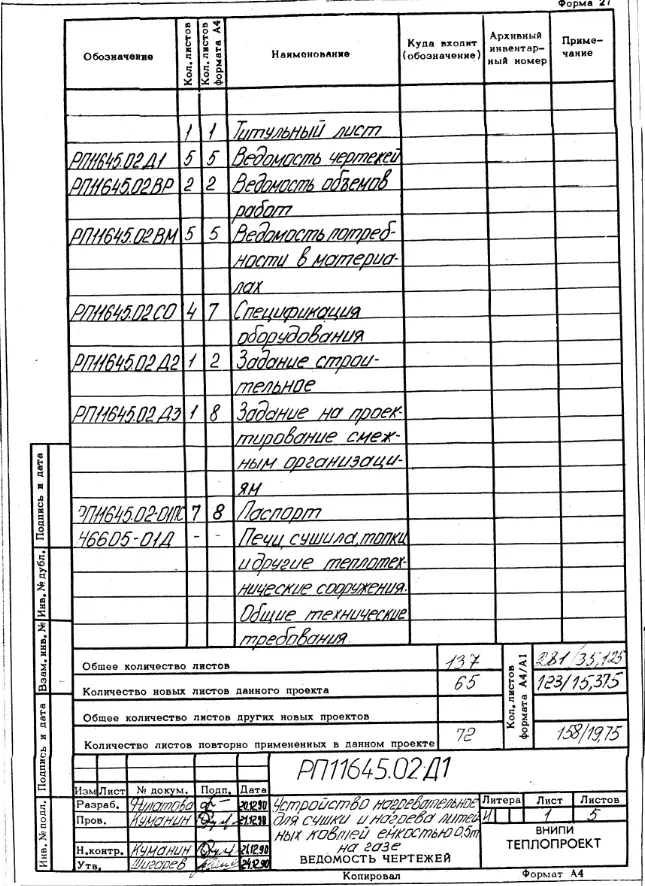 Форма 27
Обозначение Кол. листов Кол. листов формата А4 Наименование Куда входит (обозначение) Архивный инвентарный номер Примечание
1 1 Титульный лист
РП11645.02 Д1 5 5 Ведомость чертежей
РП11645.02 ВР 2 2 Ведомость объемов
работ
РП11645.02 ВМ 5 5 Ведомость потреб-
ности в материа-
лах
РП11645.02 СО 4 7 Спецификация
оборудования
РП11645.02 Д2 1 2 Задание строи-
тельное
РП11645.02 Д3 1 8 Задание на проек-
тирование смеж-
ным организаци-
ям
РП11645.02-01ПС 7 8 Паспорт
46605-01Д - - Печи, сушила, топки
и другие теплотех-
нические сооружения.
Общие технические
требования.
Общее количество листов 137 281/35,125
Количество новых листов данного проекта 65 123/15,375
Общее количество листов других новых проектов
Количество листов повторно примененных в данном проекте 72 158/19,75
Кол. листов формата А4/А1
РП11645.02 Д1
Изм Лист № докум. Подп. Дата
Разраб. 20.12.90
Пров. Куманин 21.12.90
Н.контр. Куманин 21.12.90
Утв. Шигарев 24.12.90
Устройство нагревательное
для сушки и нагрева литей
ных ковшей емкостью 0,5т
на газе
ВЕДОМОСТЬ ЧЕРТЕЖЕЙ
Литера Лист Листов
И 1 5
ВНИПИ
ТЕПЛОПРОЕКТ
Копировал Формат А4
Подпись и дата
Инв. № дубл.
Взам. инв. №
Подпись и дата
Инв. № подл.